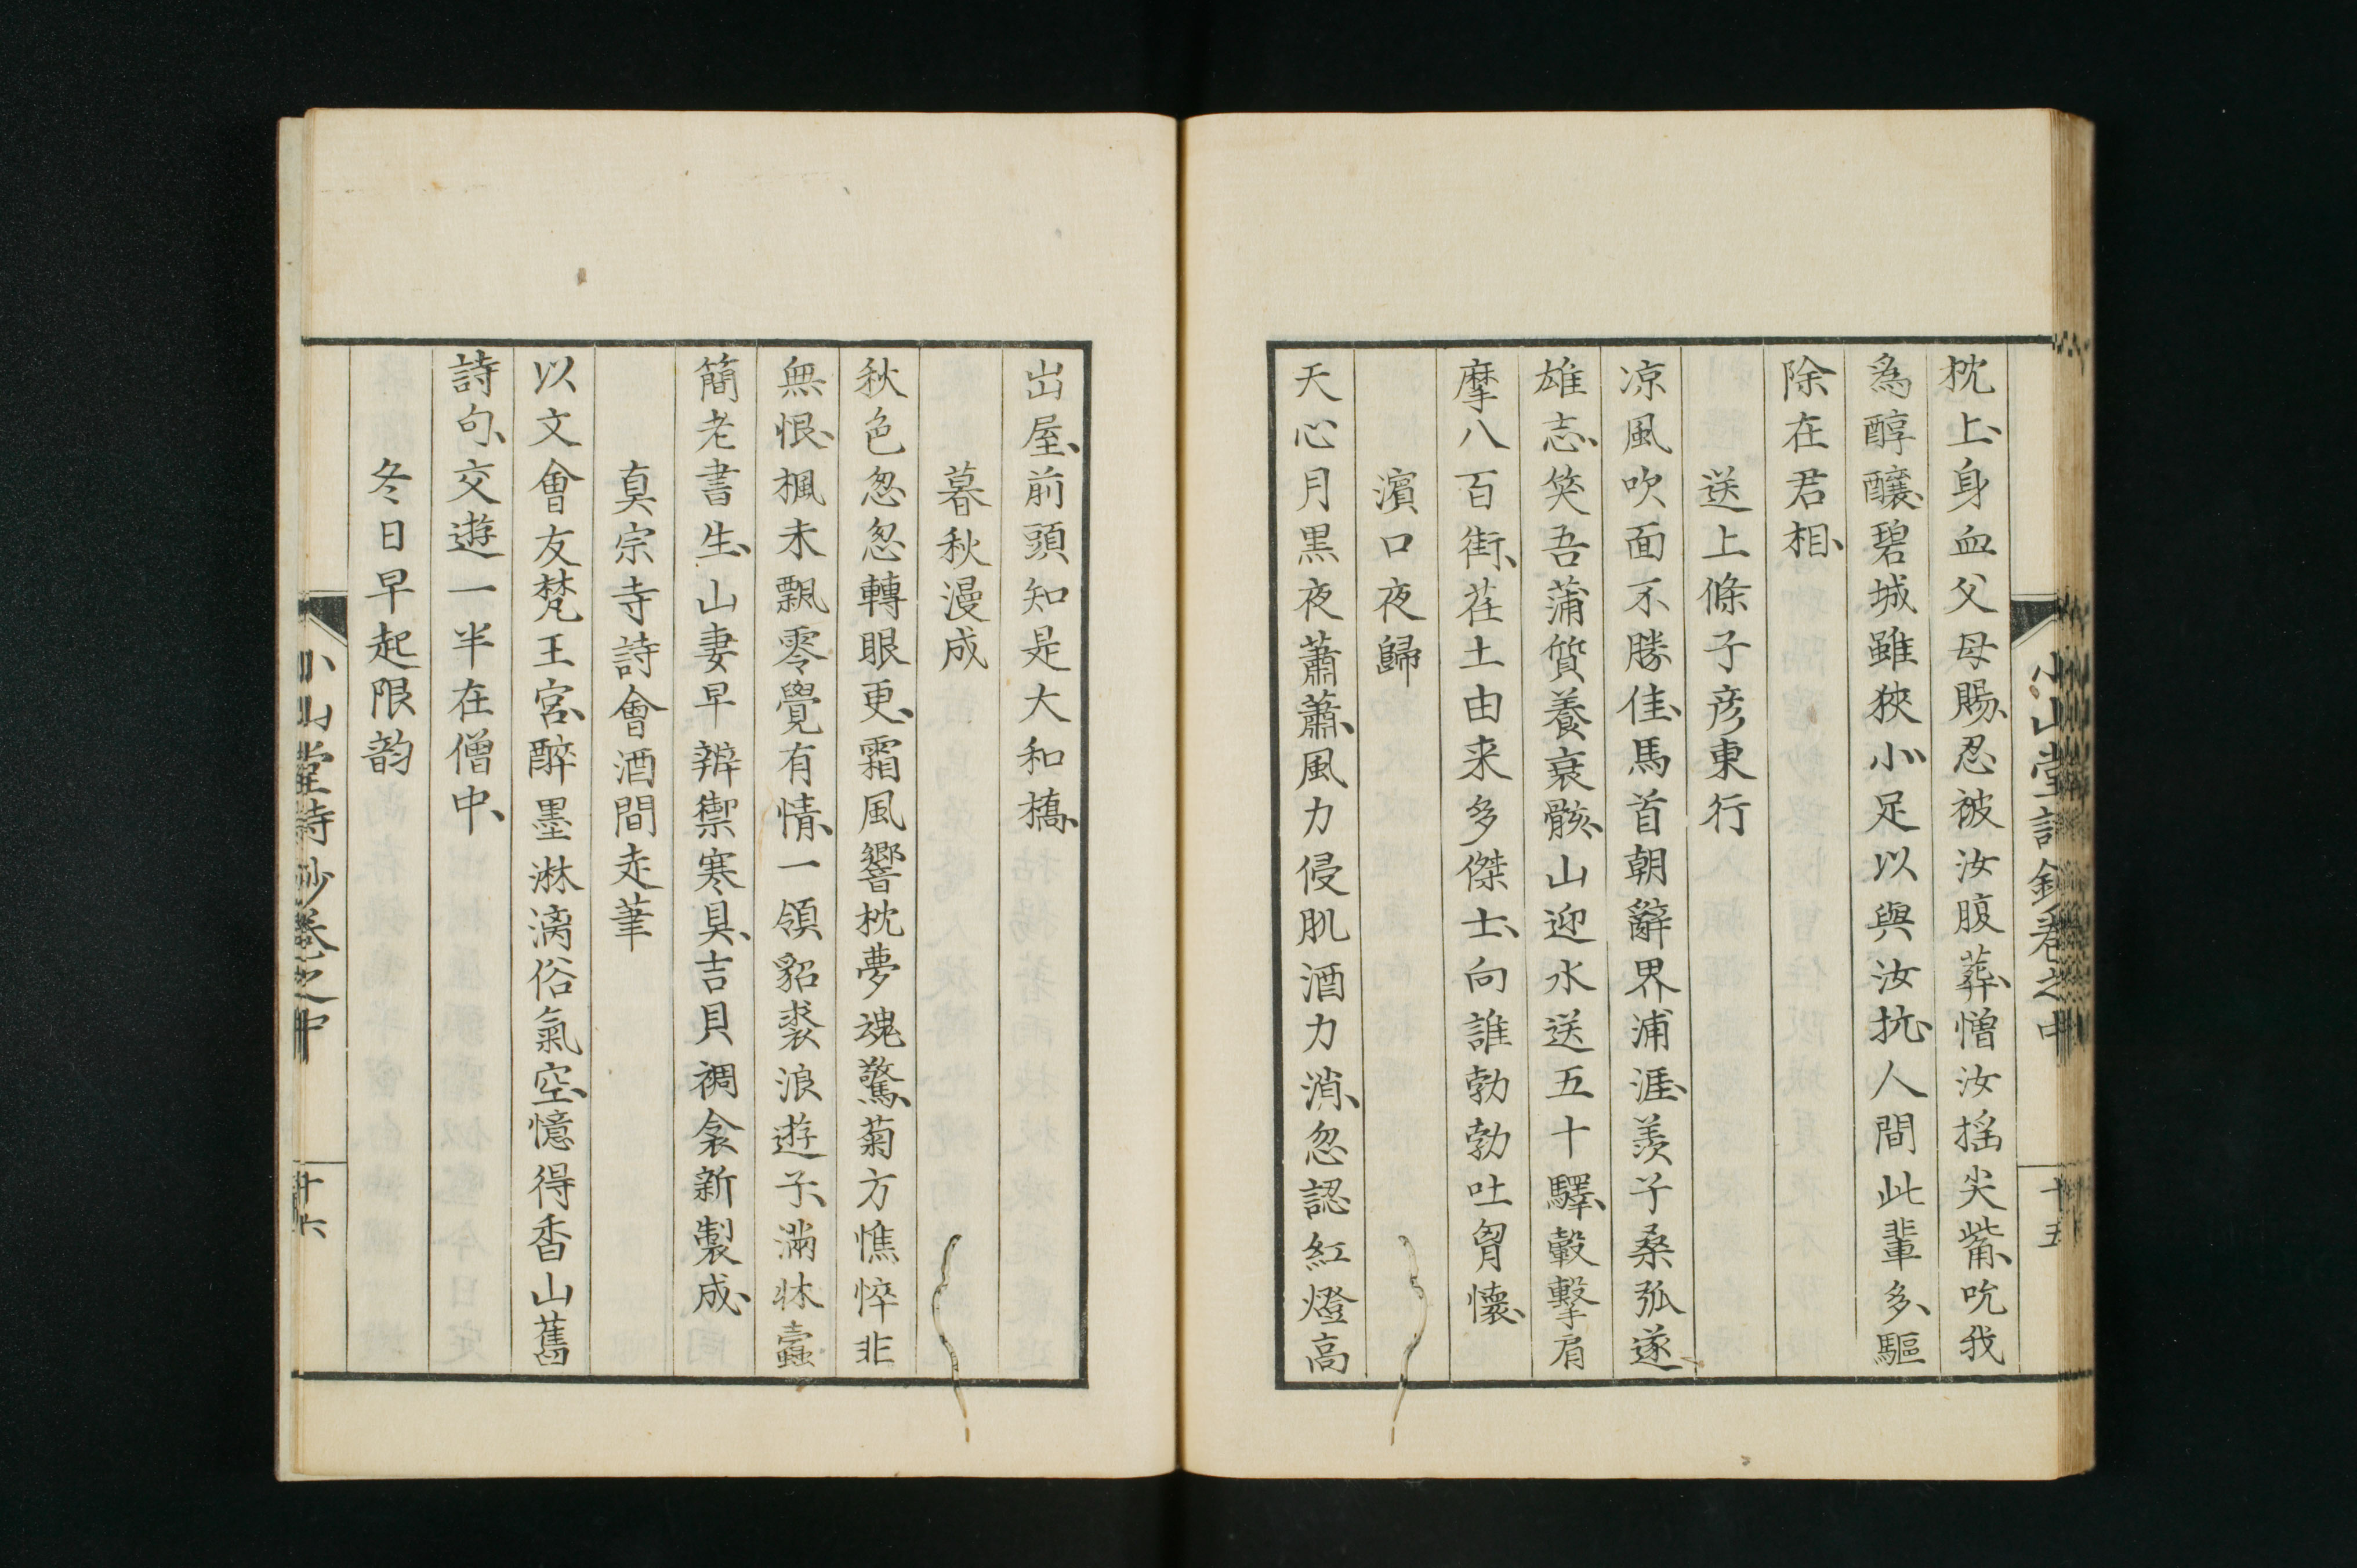 小山堂詩鈔卷之中
十五
枕上、身血父母賜、忍被汝腹葬、憎汝揺尖觜、吮我
為醇醲、碧城雖狹小、足以與汝抗、人間此輩多、驅
除在君相、
送上條子彦東行
凉風吹面不勝佳、馬首朝辭界浦涯、羨子桑弧遂
雄志、笑吾蒲質養衰骸、山迎水送五十驛、轂擊肩
摩八百街、荏土由来多傑士、向誰勃勃吐胷懷、
濱口夜歸
天心月黒夜蕭蕭、風力侵肌酒力消、忽認紅燈高
出屋、前頭知是大和橋、
暮秋漫成
秋色怱怱轉眼更、霜風響枕夢魂驚、菊方憔悴非
無恨、楓未飄零覺有情、一領貂裘浪遊子、滿牀蠹
簡老書生、山妻早辨禦寒具、吉貝裯衾新製成、
真宗寺詩會酒間走筆
以文會友梵王宮、醉墨淋漓俗氣空、憶得香山舊
詩句、交遊一半在僧中、
冬日早起限韵
小山堂詩鈔卷之中
十六